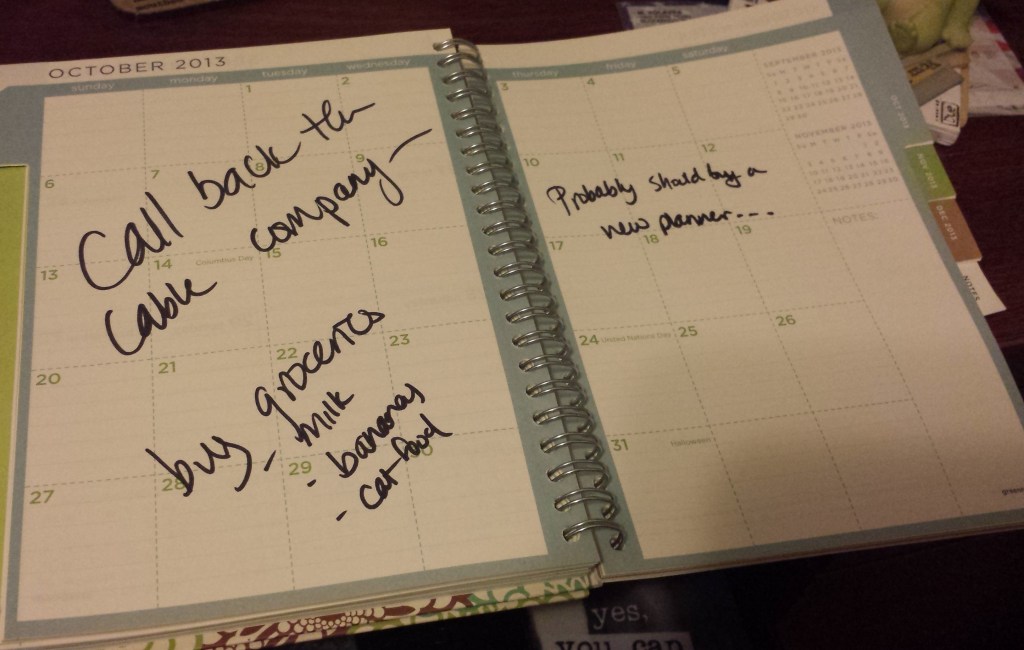 OCTOBER 2013
sunday monday tuesday wednesday
thursday friday saturday
1 2
3 4 5
6 7 8 9
10 11 12
13 14 Columbus Day 15 16
17 18 19
20 21 22 23
24 United Nations Day 25 26
27 28 29
31 Halloween
Call back the
cable company-
buy groceries
- milk
- bananas
- cat food
Probably should buy a
new planner---
SEPTEMBER 2013
NOVEMBER 2013
NOTES:
OCT 2013
NOV 2013
DEC 2013
NOTES
yes,
you can